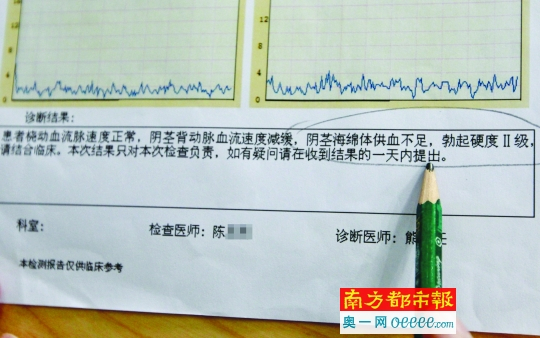 12
8
4
0
12
8
4
0
诊断结果：
患者桡动血流脉速度正常，阴茎背动脉血流速度减缓，阴茎海绵体供血不足，勃起硬度Ⅱ级，
请结合临床。本次结果只对本次检查负责，如有疑问请在收到结果的一天内提出。
科室： 检查医师：陈 诊断医师：熊 任
本检测报告仅供临床参考
南方都市報
奥一网oeeee.com